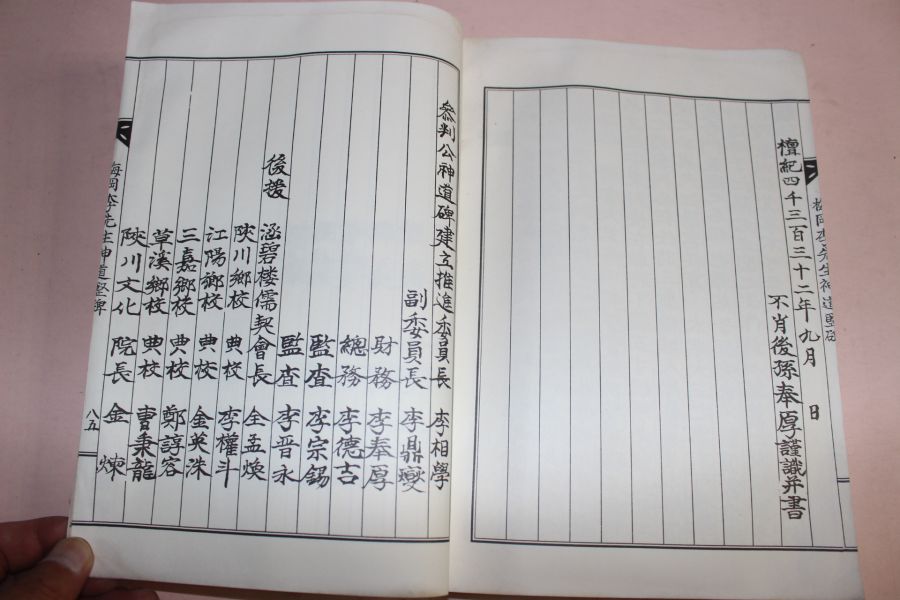 檀紀四千三百三十二年九月 日
不肖後孫奉厚謹識并書
參判公神道碑建立推進委員長 李相學
副委員長 李鼎燮
財務 李奉厚
總務 李德吉
監査 李宗錫
監査 李晋永
後援 涵碧楼儒契會長 全孟煥
陜川鄉校 典校 李權斗
江陽鄉校 典校 金英洙
三嘉鄉校 典校 鄭諄容
草溪鄉校 典校 曺秉龍
陜川文化 院長 金煉
李先生神道 碑
八五